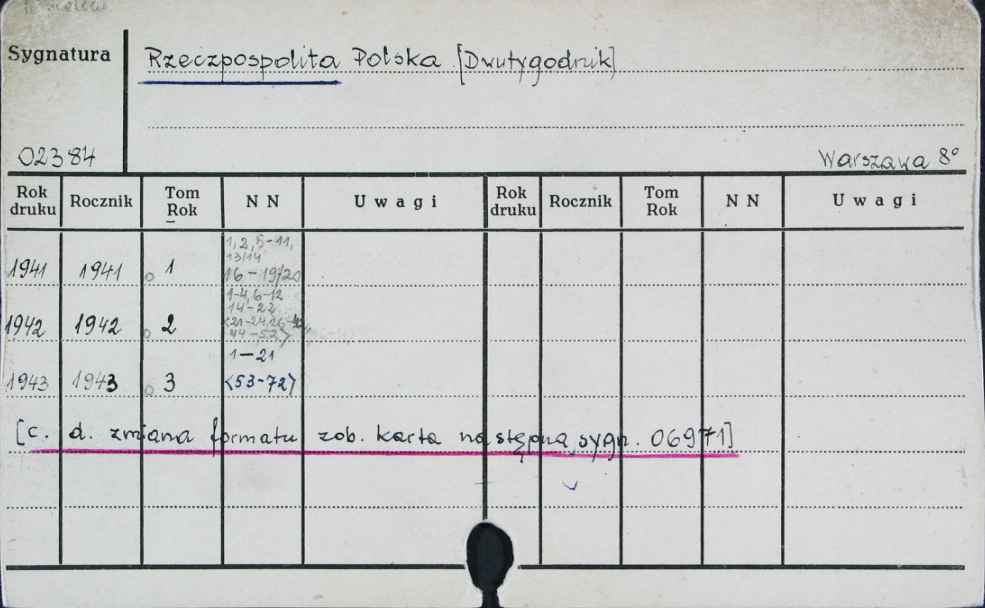 Sygnatura
Rzeczpospolita Polska [Dwutygodnik]
02384
Warszawa 8°
Rok druku Rocznik Tom Rok N N U w a g i Rok druku Rocznik Tom Rok N N U w a g i
1, 2, 5-11,
13/14
1941 1941 1 16-19/20
1-4, 6-12
14-22
1942 1942 2
44-52>
1-21
1943 1943 3 <53-72>
[c. d. zmiana formatu zob. karta następna sygn. 06971]